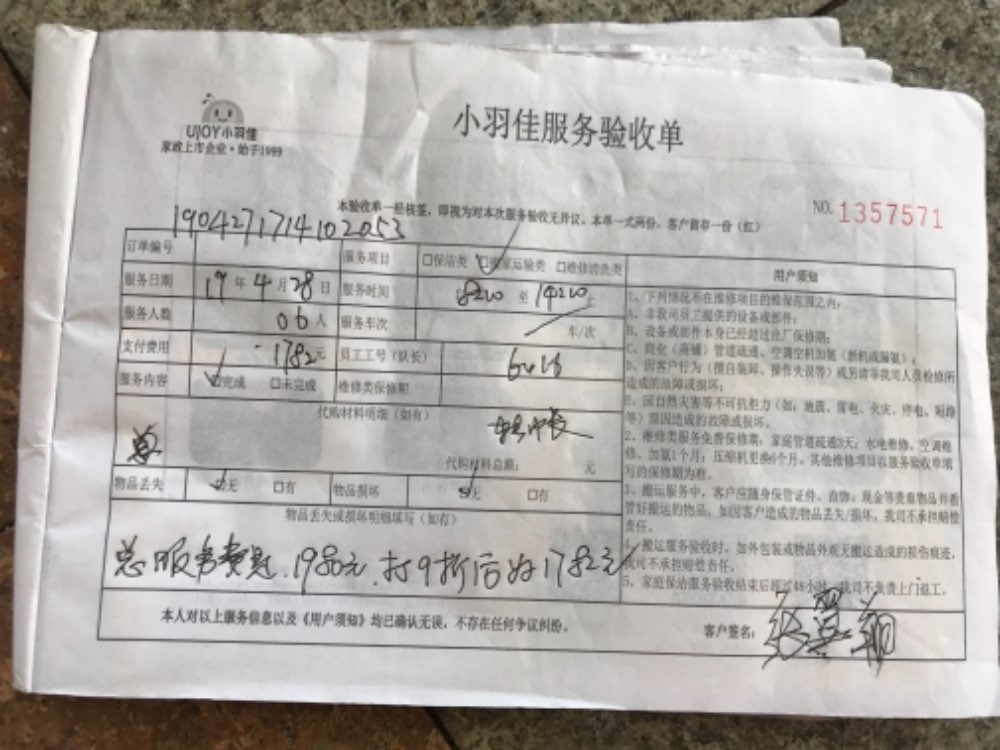 UJOY小羽佳
家政上市企业·始于1999
小羽佳服务验收单
本验收单一经核签，即视为对本次服务验收无异议。本单一式两份，客户留存一份（红）
NO. 1357571
190427171410 2053
订单编号
服务项目 □保洁类 ☑搬家运输类 □维修清洗类
服务日期 19年4月28日 服务时间 8200 至 14200 止
服务人数 06人 服务车次 车/次
支付费用 1782元 员工工号（队长）
服务内容 ☑完成 □未完成 维修类保修期
代购材料明细（如有）
代购材料总额： 元
物品丢失 ☑无 □有 物品损坏 ☑无 □有
物品丢失或损坏明细填写（如有）
总服务费是1980元，打9折后为1782元
本人对以上服务信息以及《用户须知》均已确认无误，不存在任何争议纠纷。
客户签名：
用户须知
1、下列情况不在维修项目的维保范围之内：
A、非我司员工提供的设备或部件；
B、设备或部件本身已经超过出厂保修期；
C、商业（商铺）管道疏通、空调空机加氨（新机或漏氨）；
D、因客户行为（擅自装卸、操作失误等）或另请非我司人员检修所
造成的故障或损坏；
E、因自然灾害等不可抗拒力（如：地震、雷电、火灾、停电、短路
等）原因造成的故障或损坏。
2、维修类服务免费保修期：家庭管道疏通3天；水电维修、空调维
修、加氨1个月；压缩机更换6个月。其他维修项目以服务验收单填
写的保修期为准。
3、搬运服务中，客户应随身保管证件、首饰、现金等贵重物品并看
管好搬运的物品，如因客户造成的物品丢失/损坏，我司不承担赔偿
责任。
4、搬运服务验收时，如外包装或物品外观无搬运造成的损伤痕迹，
我司不承担赔偿责任。
5、家庭保洁服务验收结束后超过48小时，我司不负责上门返工。